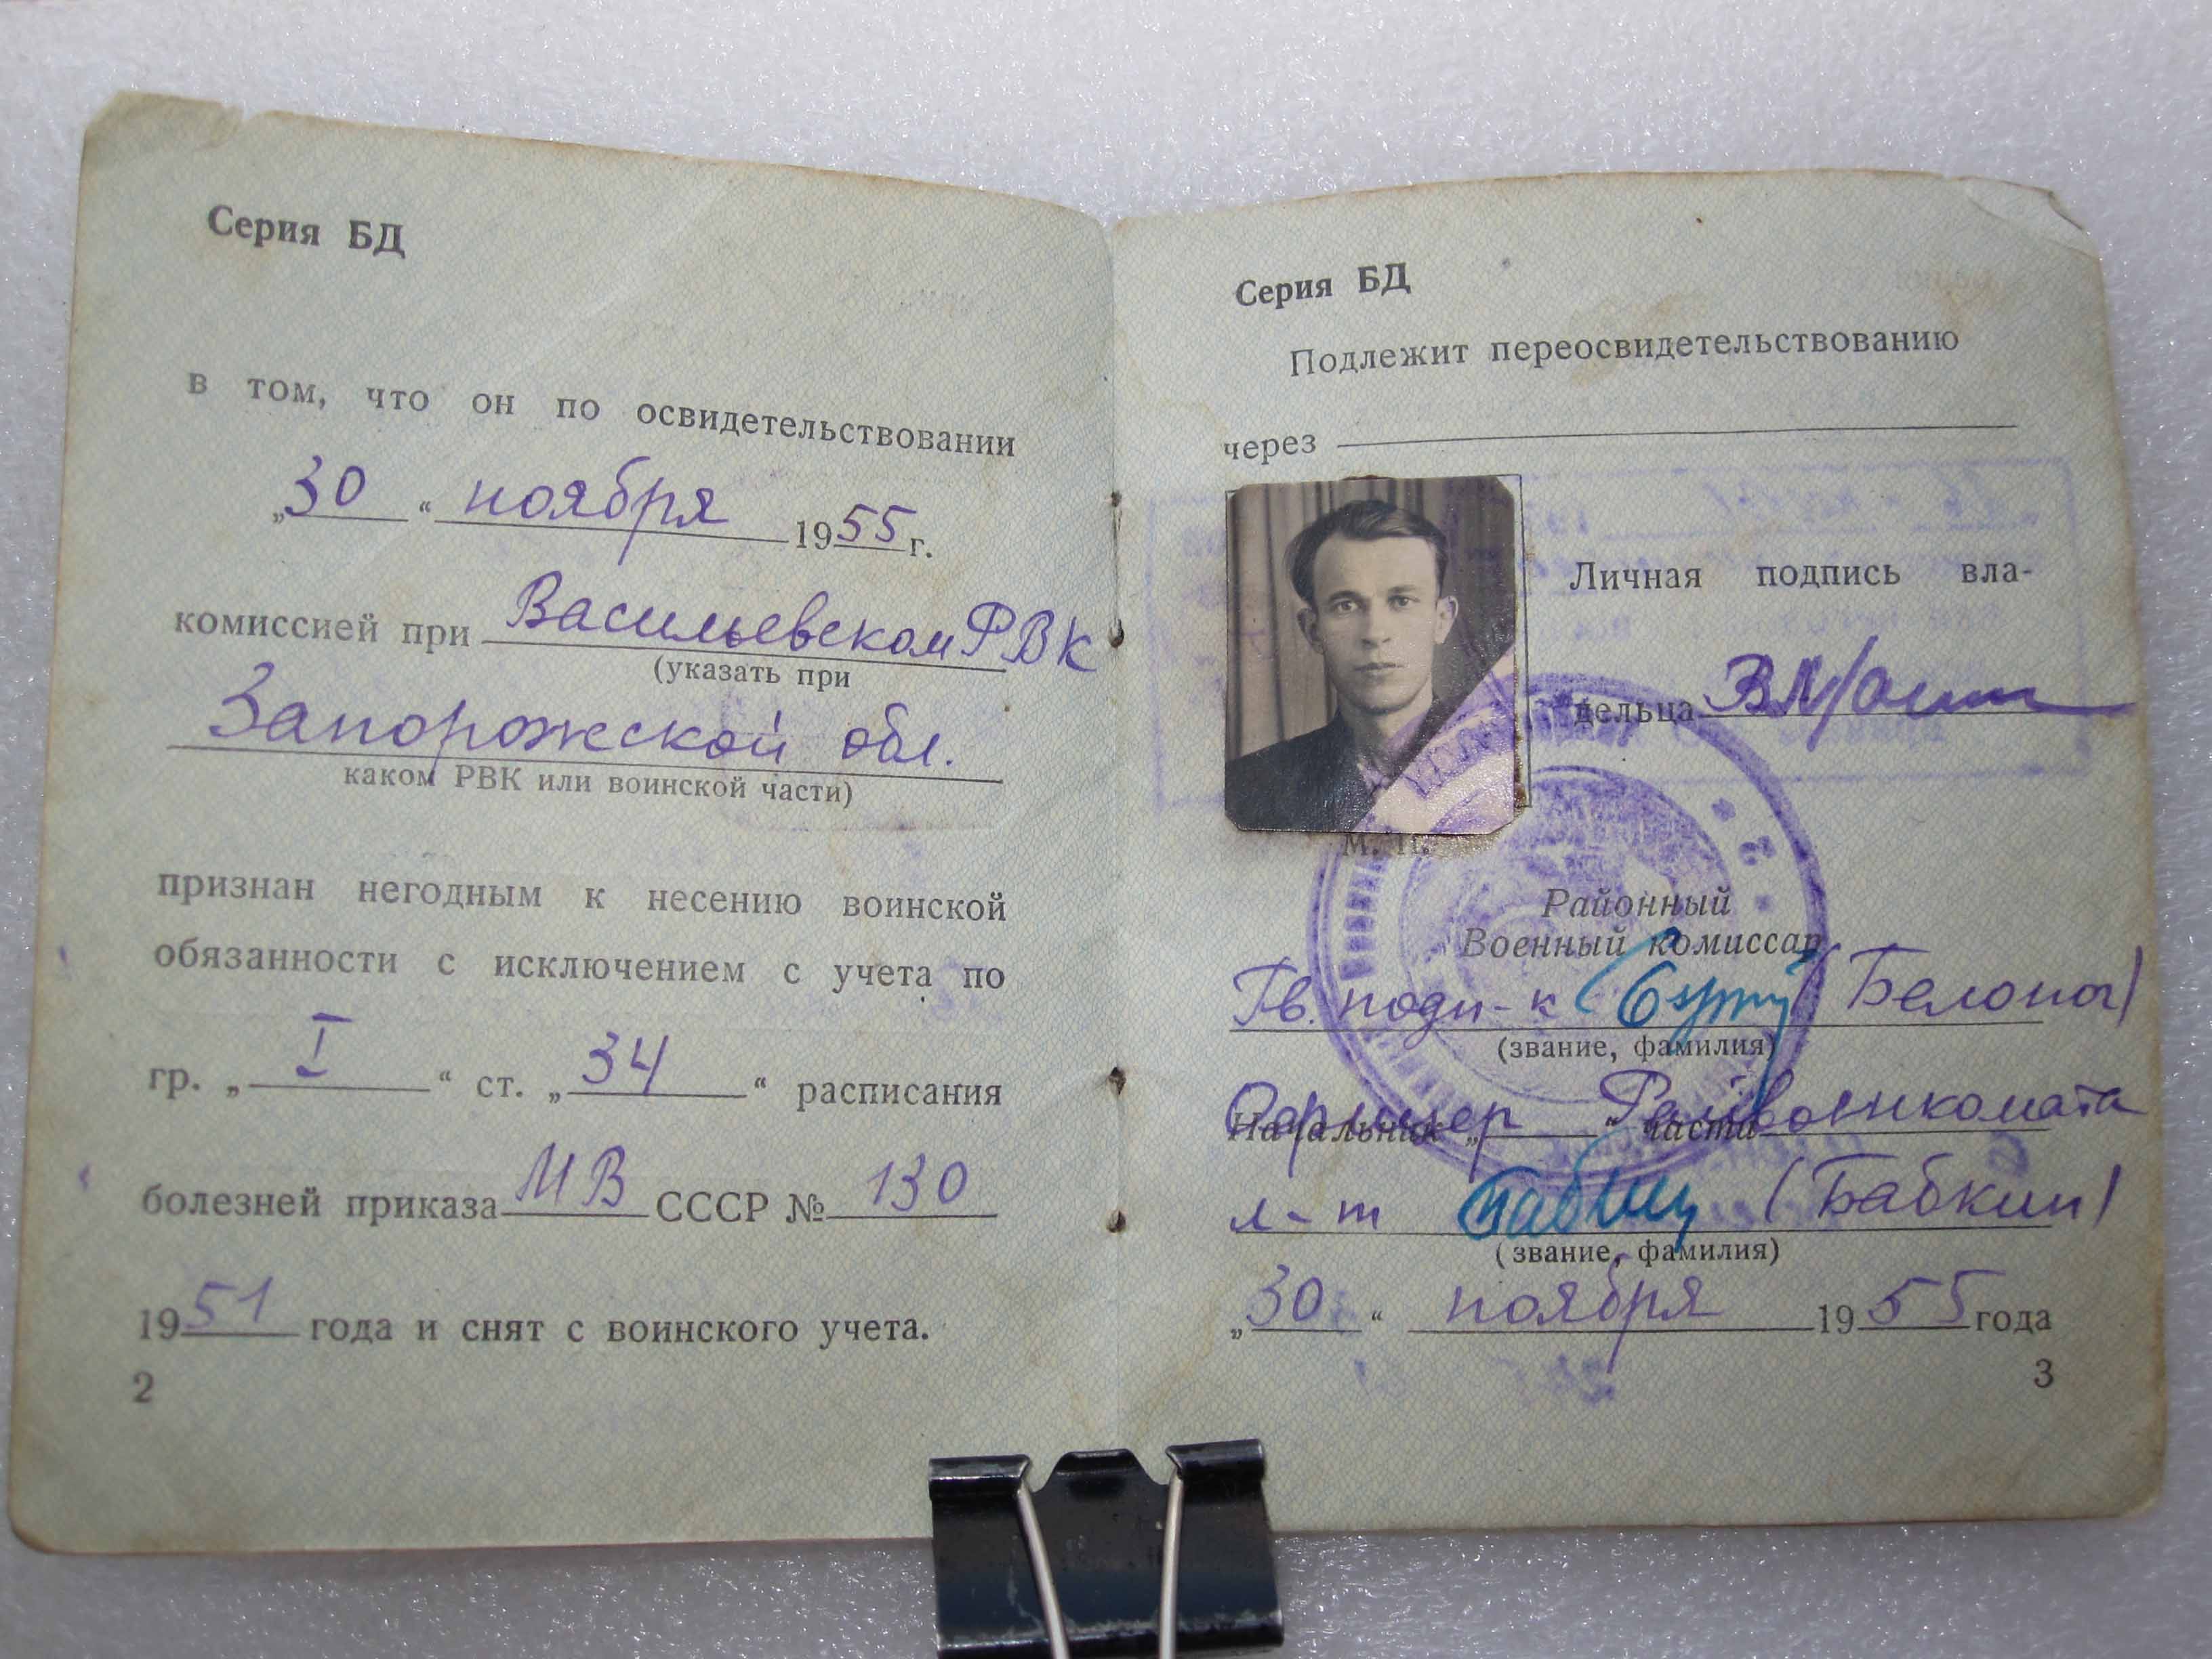 Серия БД
в том, что он по освидетельствовании
„30“ ноября 1955 г.
комиссией при Васильевском РВК
(указать при
Запорожской обл.
каком РВК или воинской части)
признан негодным к несению воинской
обязанности с исключением с учета по
гр. „I“ ст. „34“ расписания
болезней приказа МВ СССР № 130
1951 года и снят с воинского учета.
2
Серия БД
Подлежит переосвидетельствованию
через
Личная подпись вла-
дельца
М. П.
Районный
Военный комиссар
Гв. подп-к (
(звание, фамилия)
Офицер Райвоенкомата
Начальник „ “ части
л-т (Бабкин)
(звание, фамилия)
„30“ ноября 1955 года
3